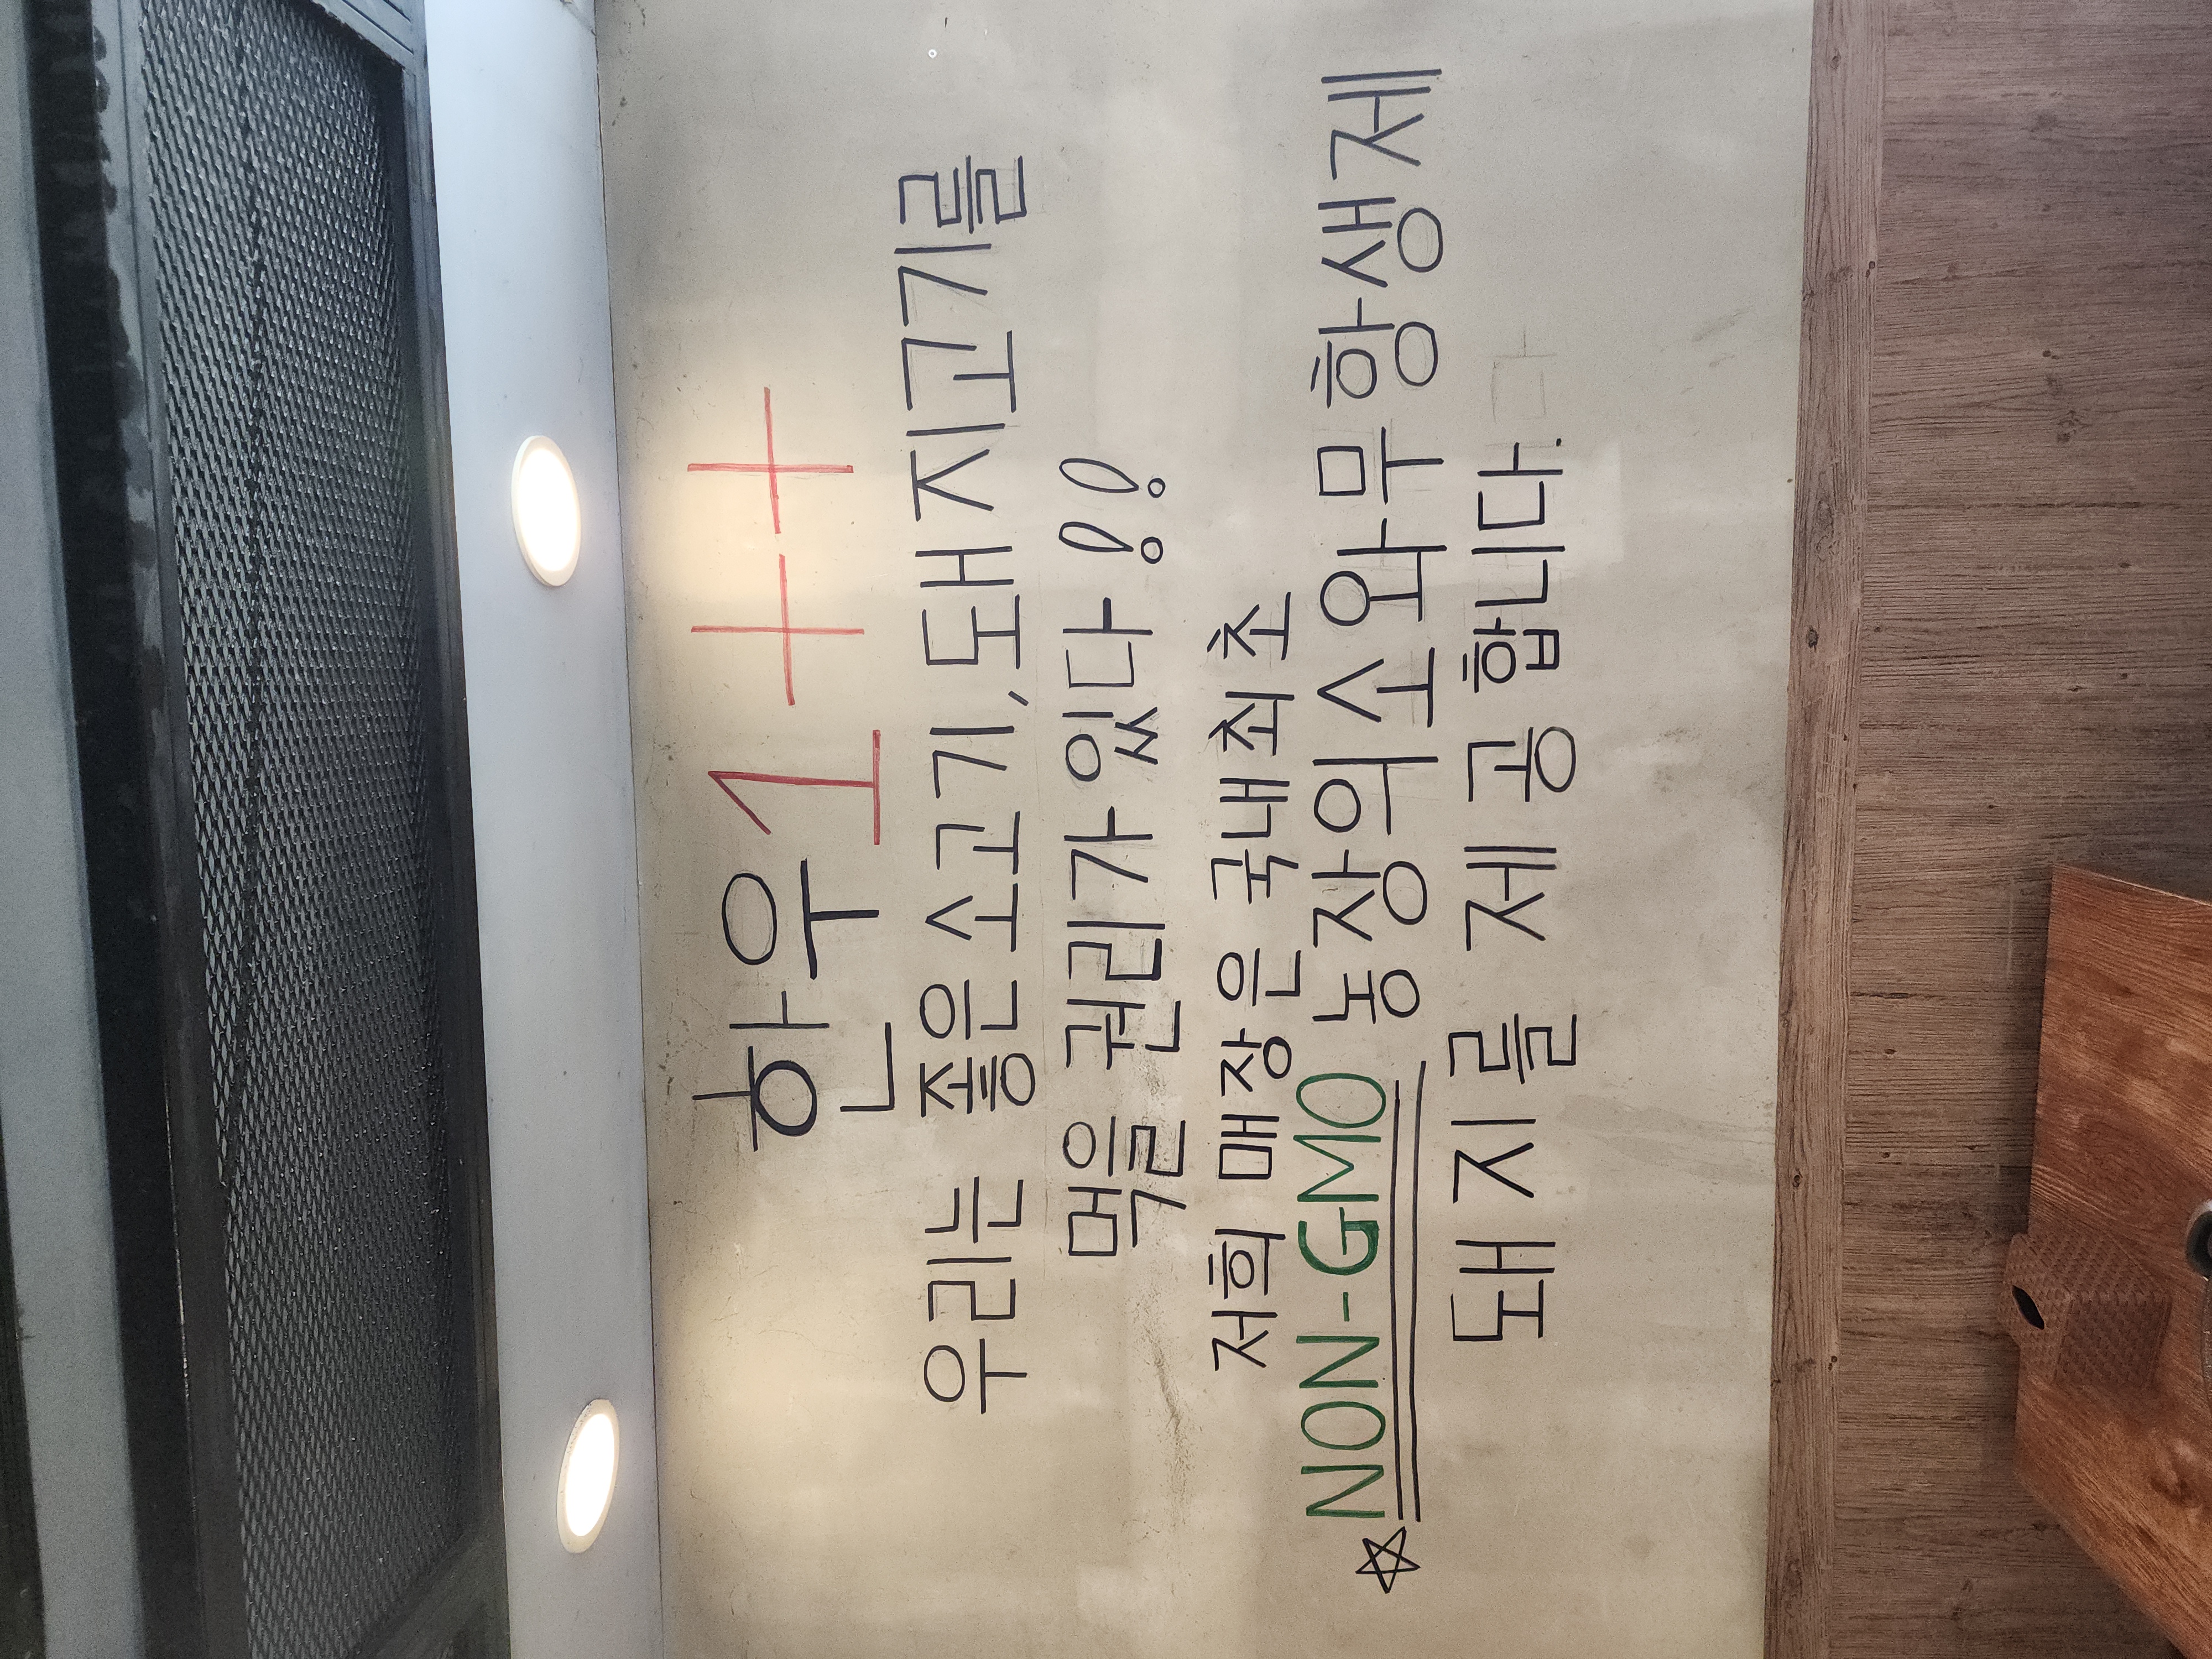 한우 1++
우리는 좋은 소고기, 돼지고기를
먹을 권리가 있다!!
저희 매장은 국내 최초
☆NON-GMO 농장의 소와 무항생제
돼지를 제공합니다.